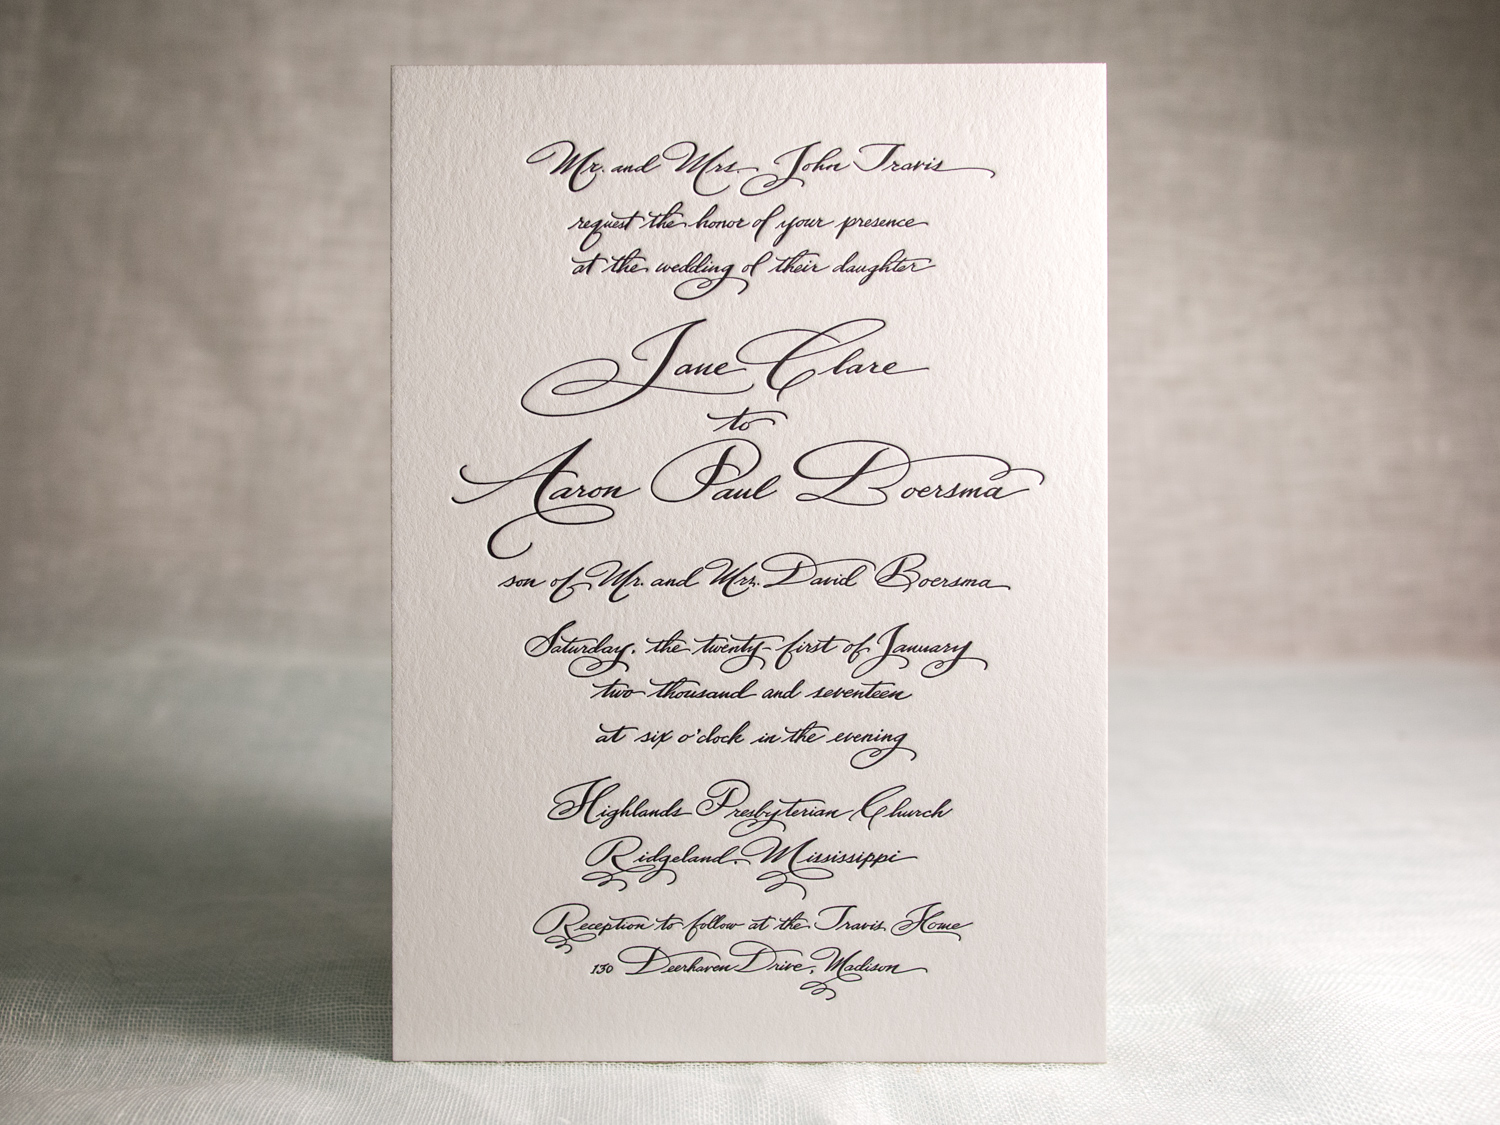 Mr. and Mrs. John Travis
request the honor of your presence
at the wedding of their daughter
Jane Clare
to
Aaron Paul Boersma
son of Mr. and Mrs. David Boersma
Saturday, the twenty-first of January
two thousand and seventeen
at six o'clock in the evening
Highlands Presbyterian Church
Ridgeland, Mississippi
Reception to follow at the Travis Home
130 Deerhaven Drive, Madison